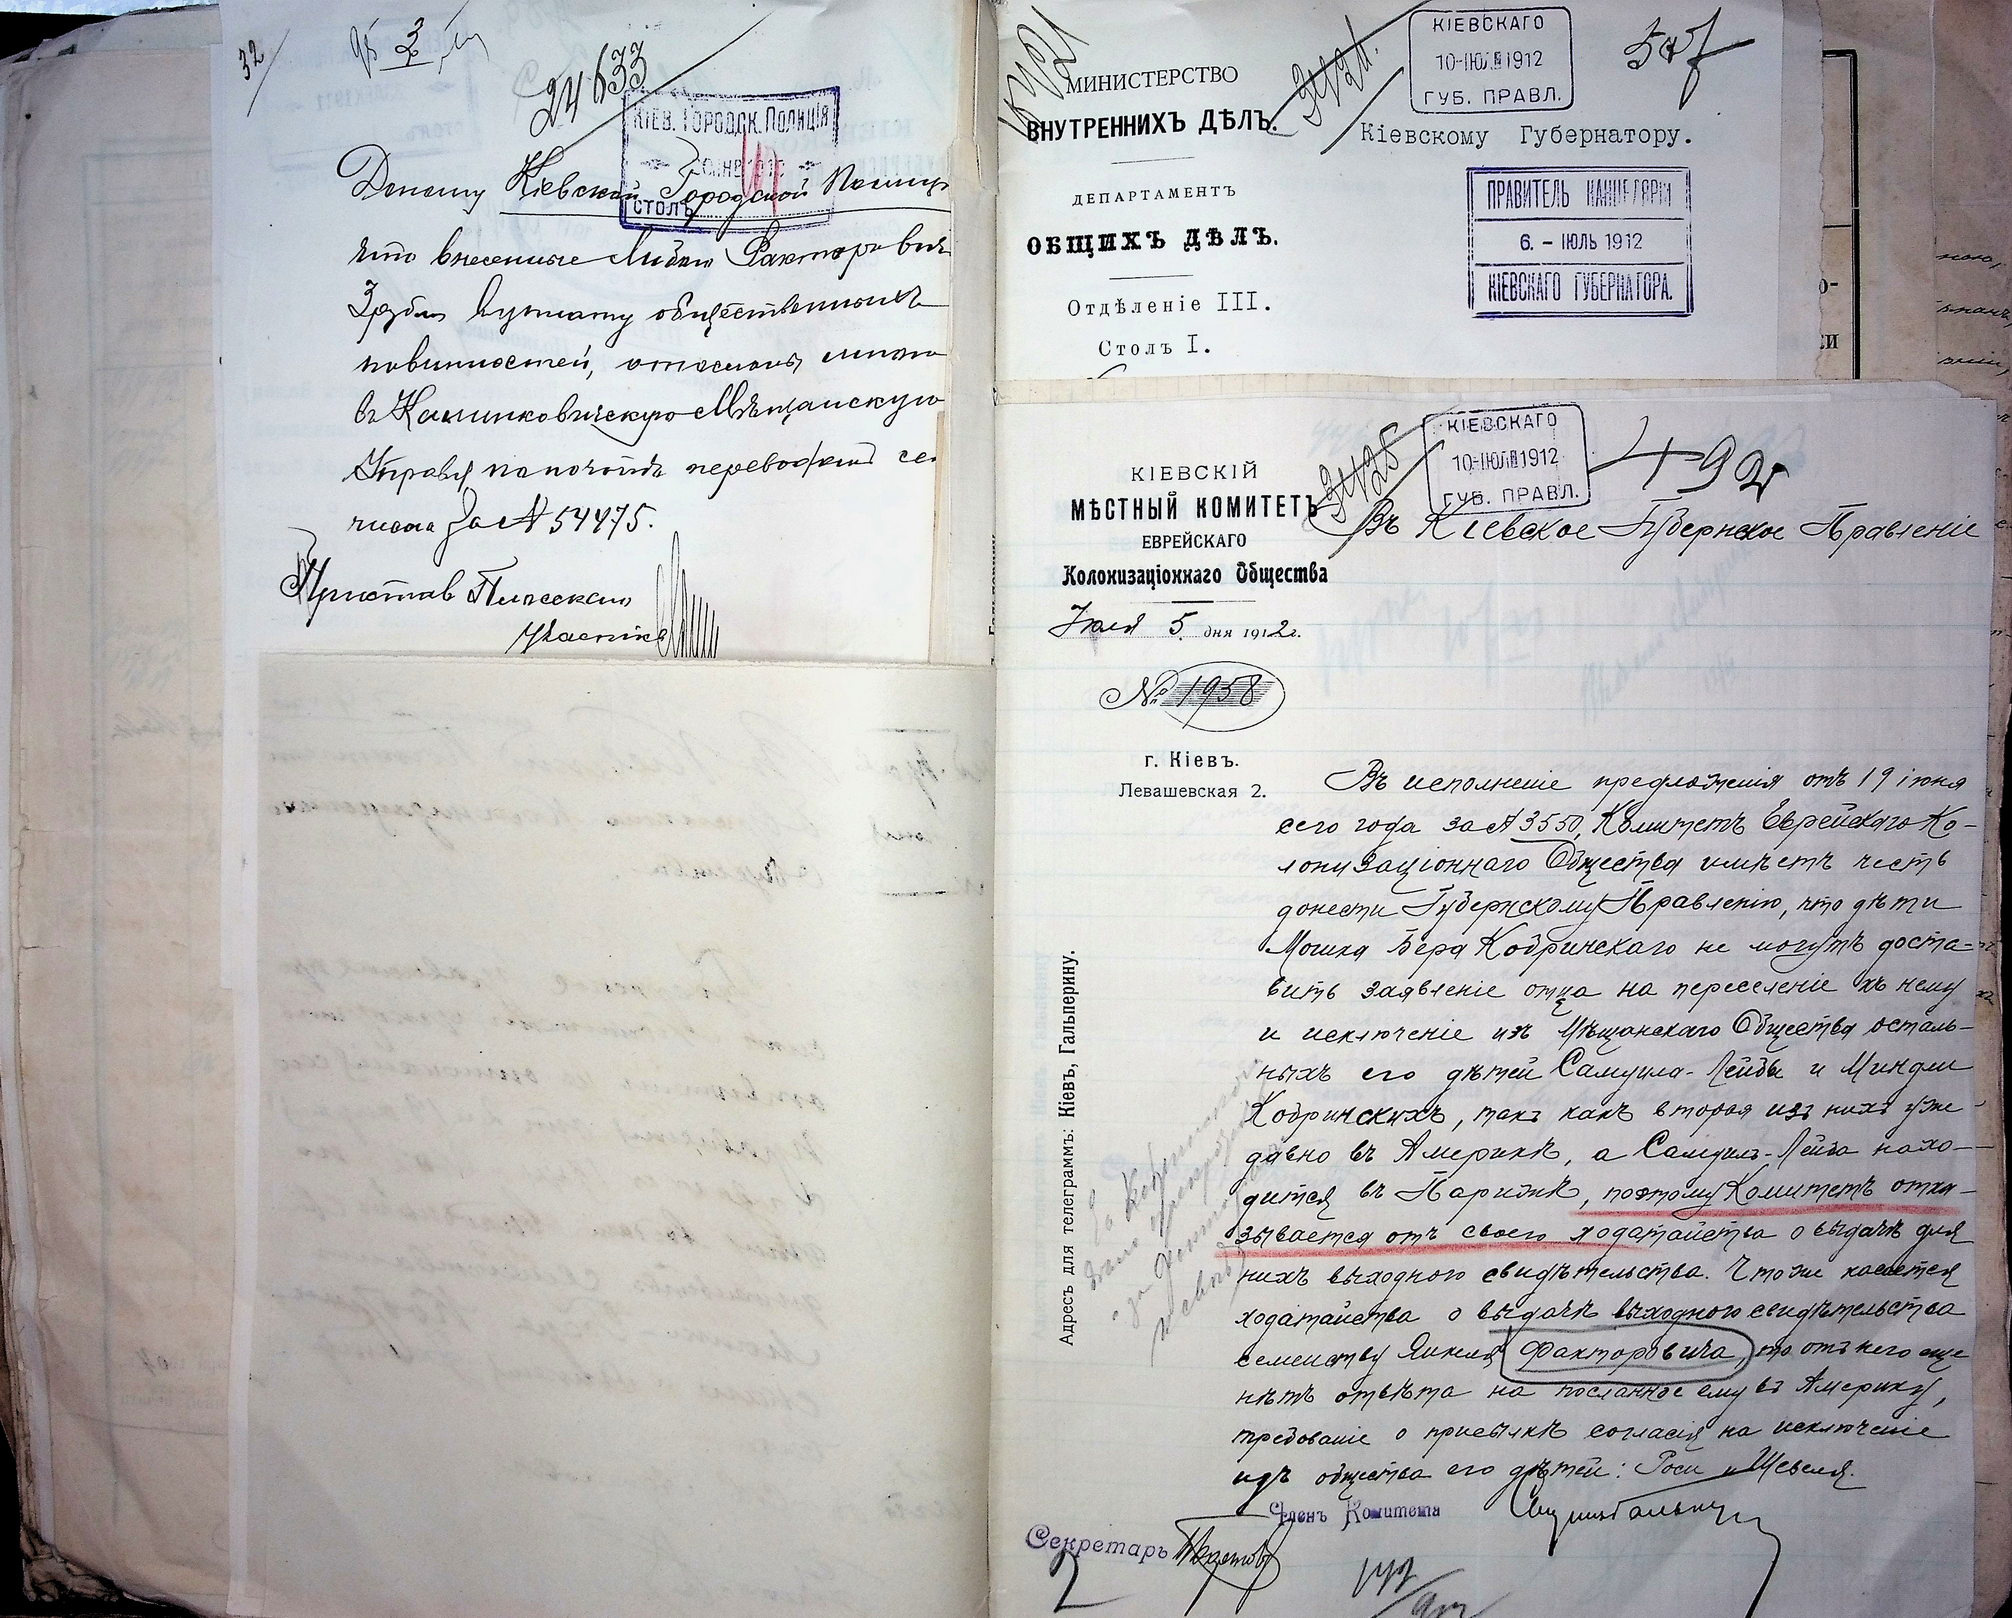 32
24633
КІЕВ. ГОРОДСК. ПОЛИЦІЯ
СТОЛЪ
Доношу Кіевской Городской Полиц
что внесенные Факторович
3 рубля общественныхъ
повинностей, отосланы мною
въ Калинковичскую Мѣщанскую
Управу по почтѣ переводомъ се
числа за № 54475.
Приставъ
участка
МИНИСТЕРСТВО
ВНУТРЕННИХЪ ДѢЛЪ.
ДЕПАРТАМЕНТЪ
ОБЩИХЪ ДѢЛЪ.
Отдѣленіе III.
Столъ I.
КІЕВСКАГО
10-ІЮЛ 1912
ГУБ. ПРАВЛ.
Кіевскому Губернатору.
ПРАВИТЕЛЬ КАНЦЕЛЯРІИ
6. - ІЮЛЬ 1912
КІЕВСКАГО ГУБЕРНАТОРА.
КІЕВСКІЙ
МѢСТНЫЙ КОМИТЕТЪ
ЕВРЕЙСКАГО
Колонизаціоннаго Общества
Іюля 5 дня 1912 г.
№ 1958
г. Кіевъ.
Левашевская 2.
Адресъ для телеграммъ: Кіевъ, Гальперину.
КІЕВСКАГО
10-ІЮЛ 1912
ГУБ. ПРАВЛ.
492
Въ Кіевское Губернское Правленіе
Въ исполненіе предложенія отъ 19 іюня
сего года за № 3550, Комитетъ Еврейскаго Ко-
лонизаціоннаго Общества имѣетъ честь
донести Губернскому Правленію, что дѣти
Мошка Бера Кобринскаго не могутъ доста-
вить заявленіе отца на переселеніе къ нему
и исключеніе изъ Мѣщанскаго Общества осталь-
ныхъ его дѣтей Самуила-Лейбы и Миндли
Кобринскихъ, такъ какъ вторая изъ нихъ уже
давно въ Америкѣ, а Самуилъ-Лейба нахо-
дится въ Парижѣ, поэтому Комитетъ отка-
зывается отъ своего ходатайства о выдачѣ для
нихъ выходного свидѣтельства. Что же касается
ходатайства о выдачѣ выходного свидѣтельства
семейству Янкеля Факторовича, то отъ него еще
нѣтъ отвѣта на посланное ему въ Америку,
требованіе о присылкѣ согласія на исключеніе
изъ общества его дѣтей: Роси и Шевеля.
Членъ Комитета
Секретарь